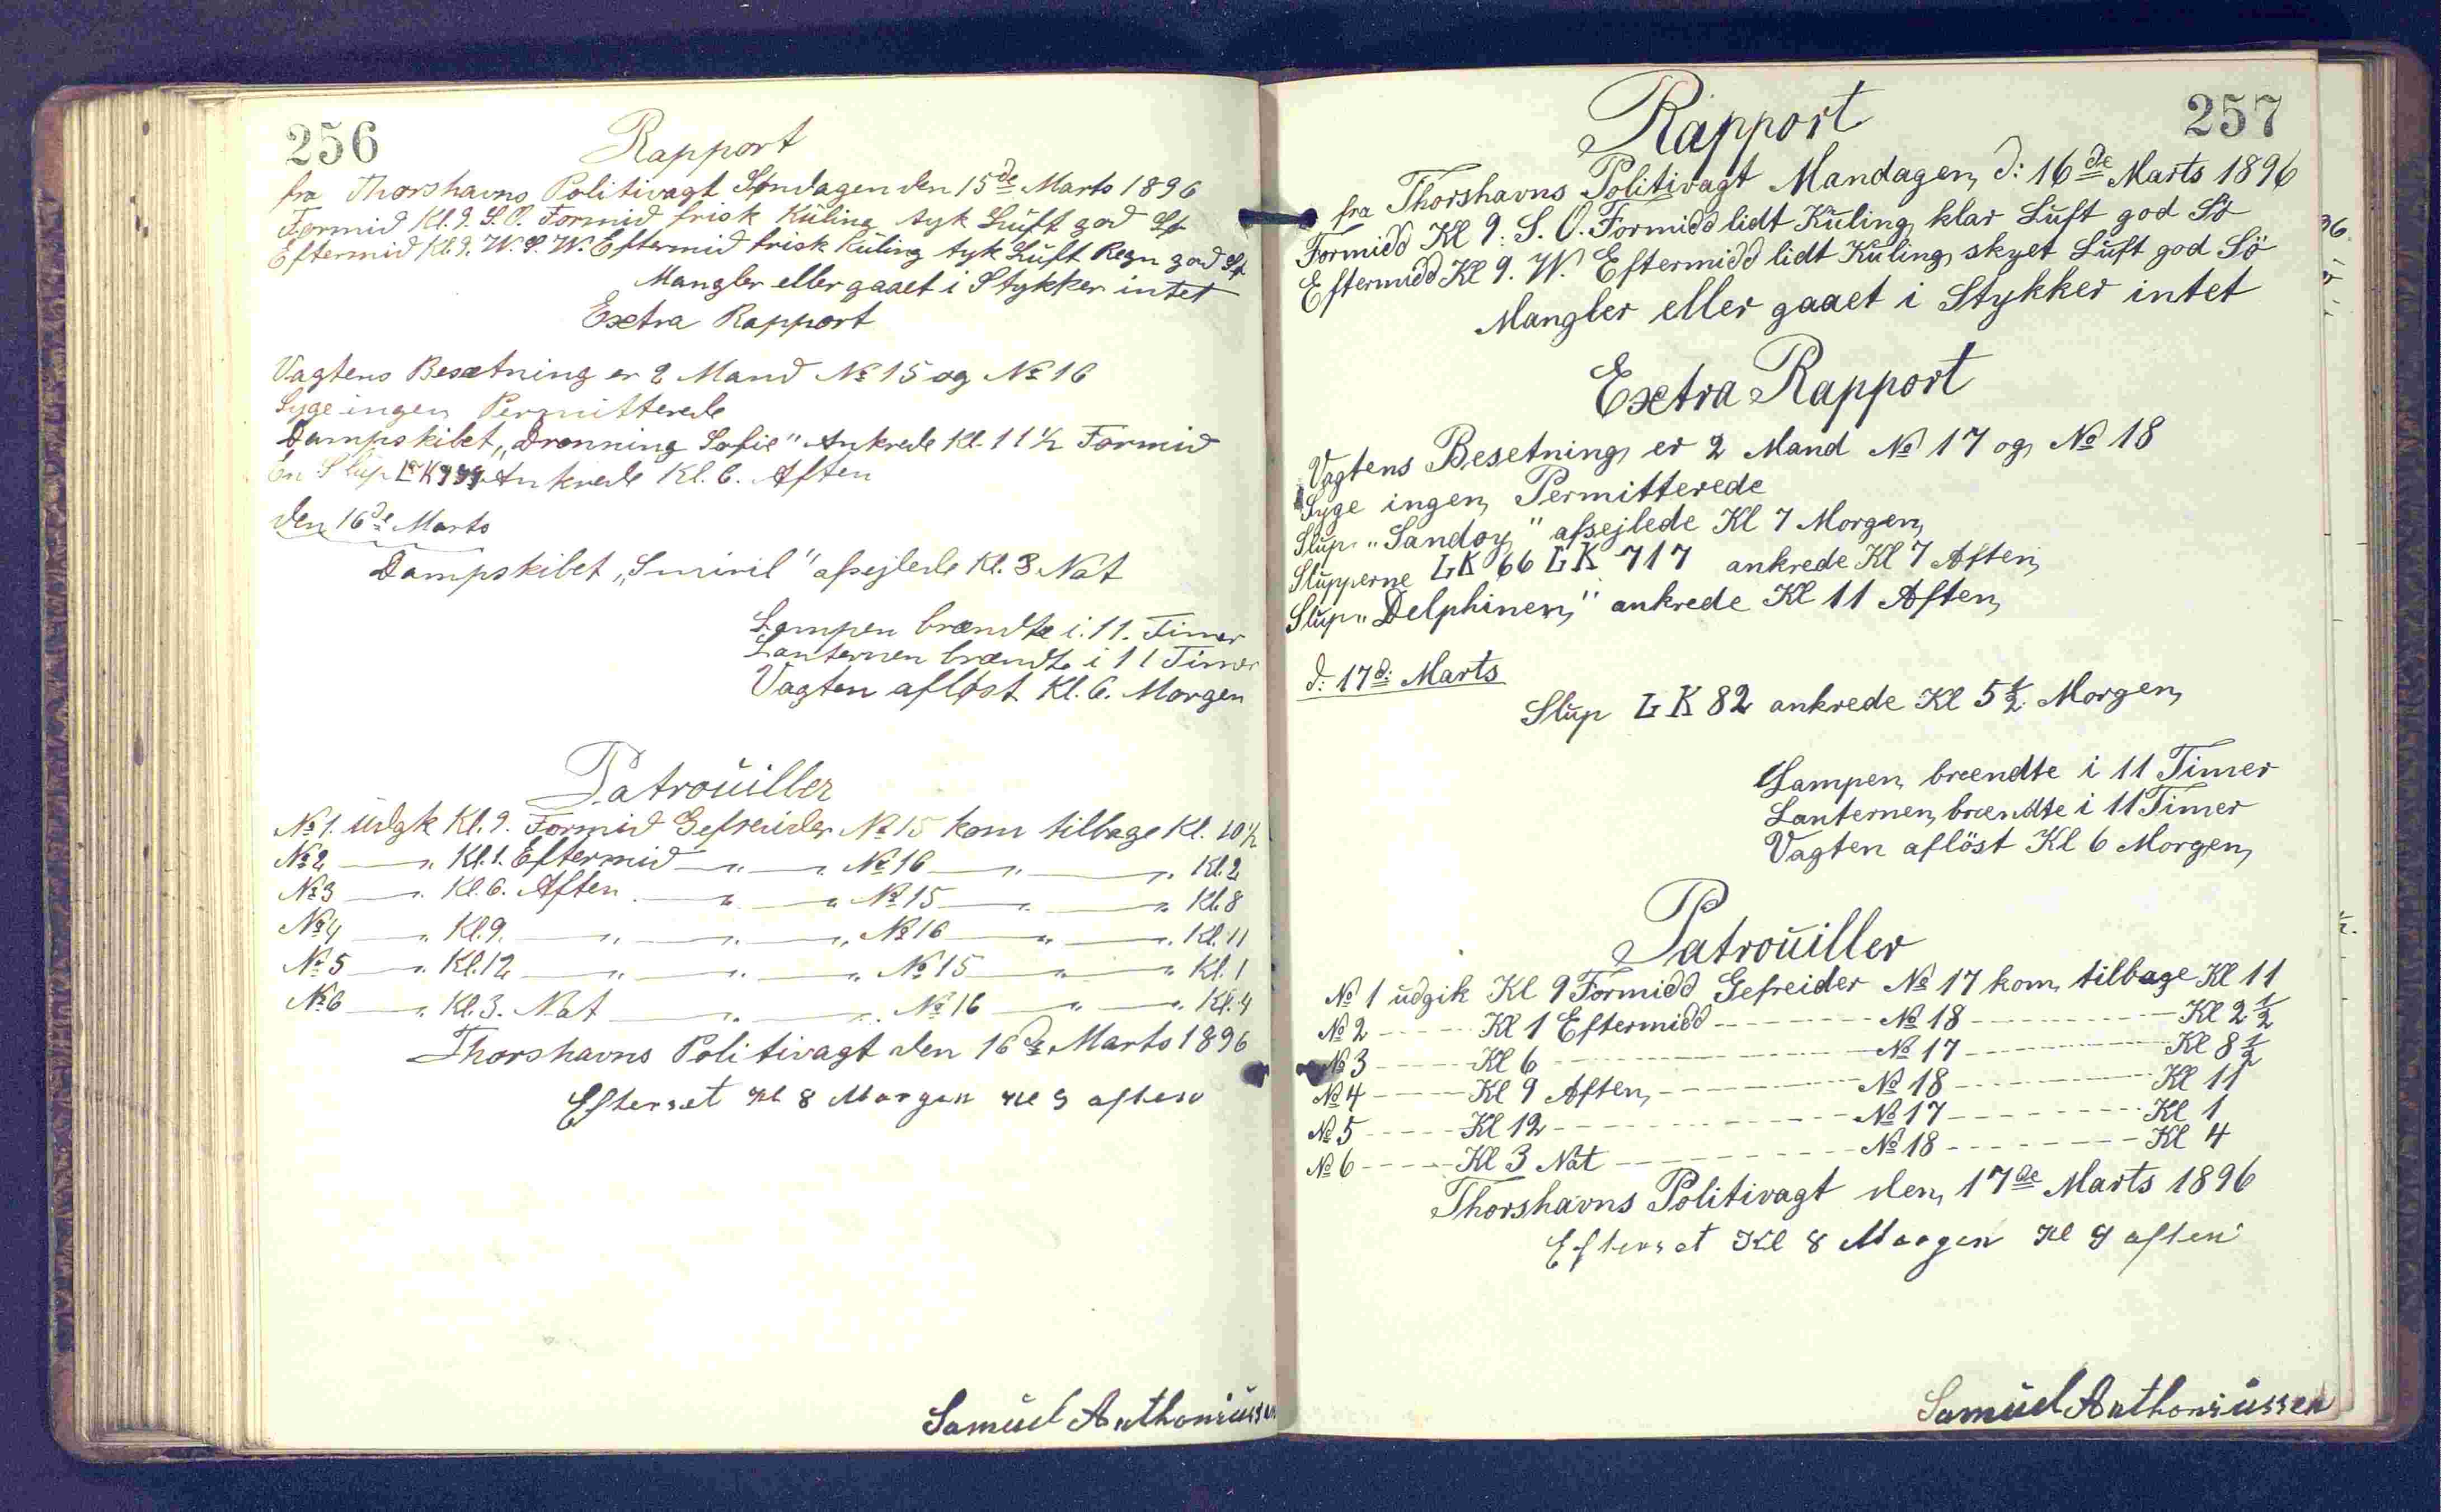 256
Rapport
fra Thorshavns Politivagt Søndagen den 15de Marts 1896
Formid Kl. 9. S. O. Formid frisk Kūling tyk Lūft god Sø
Eftermid Kl. 9. W. S. W. Eftermid frisk Kūling tyk Lūft Regn god Sø
Mangler eller gaaet i Stykker intet
Extra Rapport
Vagtens Besætning er 2 Mand No 15 og No 16
Syge ingen Permitterede
Dampskibet „Dronning Sofie" Ankrede Kl. 11 ½ Formid
En Slūp LK Ankrede Kl. 6. Aften
den 16de Marts
Dampskibet „Smiril" afsejlede Kl. 3 Nat
Lampen brændte i 11. Timer
Lanternen brændte i 11 Timer
Vagten afløst Kl. 6. Morgen
Patroūiller
No 1. ūdgk Kl. 9. Formid Gefreider No 15 kom tilbage Kl. 10½
No 2 — „ Kl. 1. Eftermid — „ — „ No 16 — „ — „ Kl. 2
No 3 — „ Kl. 6. Aften — „ — „ No 15 — „ — „ Kl. 8
No 4 — „ Kl. 9. — „ — „ — „ No 16 — „ — „ Kl. 11
No 5 — „ Kl. 12 — „ — „ — „ No 15 — „ — „ Kl. 1
No 6 — „ Kl. 3. Nat — „ — „ No 16 — „ — „ Kl. 4
Thorshavns Politivagt den 16de Marts 1896
Efterset Kl 8 Morgen Kl 9 aften
Samūel Anthoniūssen
257
Rapport
fra Thorshavns Politivagt Mandagen d: 16de Marts 1896
Formidd Kl 9. S. O. Formidd lidt Kūling klar Lūft god Sö
Eftermidd Kl 9. W. Eftermidd lidt Kūling skyet Lūft god Sö
Mangler eller gaaet i Stykker intet
Extra Rapport
Vagtens Besetning er 2 Mand No 17 og No 18
Syge ingen Permitterede
Slūp „Sandoy" afsejlede Kl 7 Morgen
Slūpperne LK 66 LK 717 ankrede Kl 7 Aften
Slūp „Delphinen" ankrede Kl 11 Aften
d: 17d: Marts
Slūp LK 82 ankrede Kl 5 ½ Morgen
Lampen breendte i 11 Timer
Lanternen brændte i 11 Timer
Vagten aflöst Kl 6 Morgen
Patroūiller
No 1 ūdgik Kl 9 Formidd Gefreider No 17 kom tilbage Kl 11
No 2 ----- Kl 1 Eftermidd -------- No 18 -------- Kl 2 ½
No 3 ----- Kl 6 -------- No 17 -------- Kl 8 ½
No 4 ----- Kl 9 Aften -------- No 18 -------- Kl 11
No 5 ----- Kl 12 -------- No 17 -------- Kl 1
No 6 ----- Kl 3 Nat -------- No 18 -------- Kl 4
Thorshavns Politivagt den 17de Marts 1896
Efterset Kl 8 Morgen Kl 9 aften
Samūel Anthoniūssen